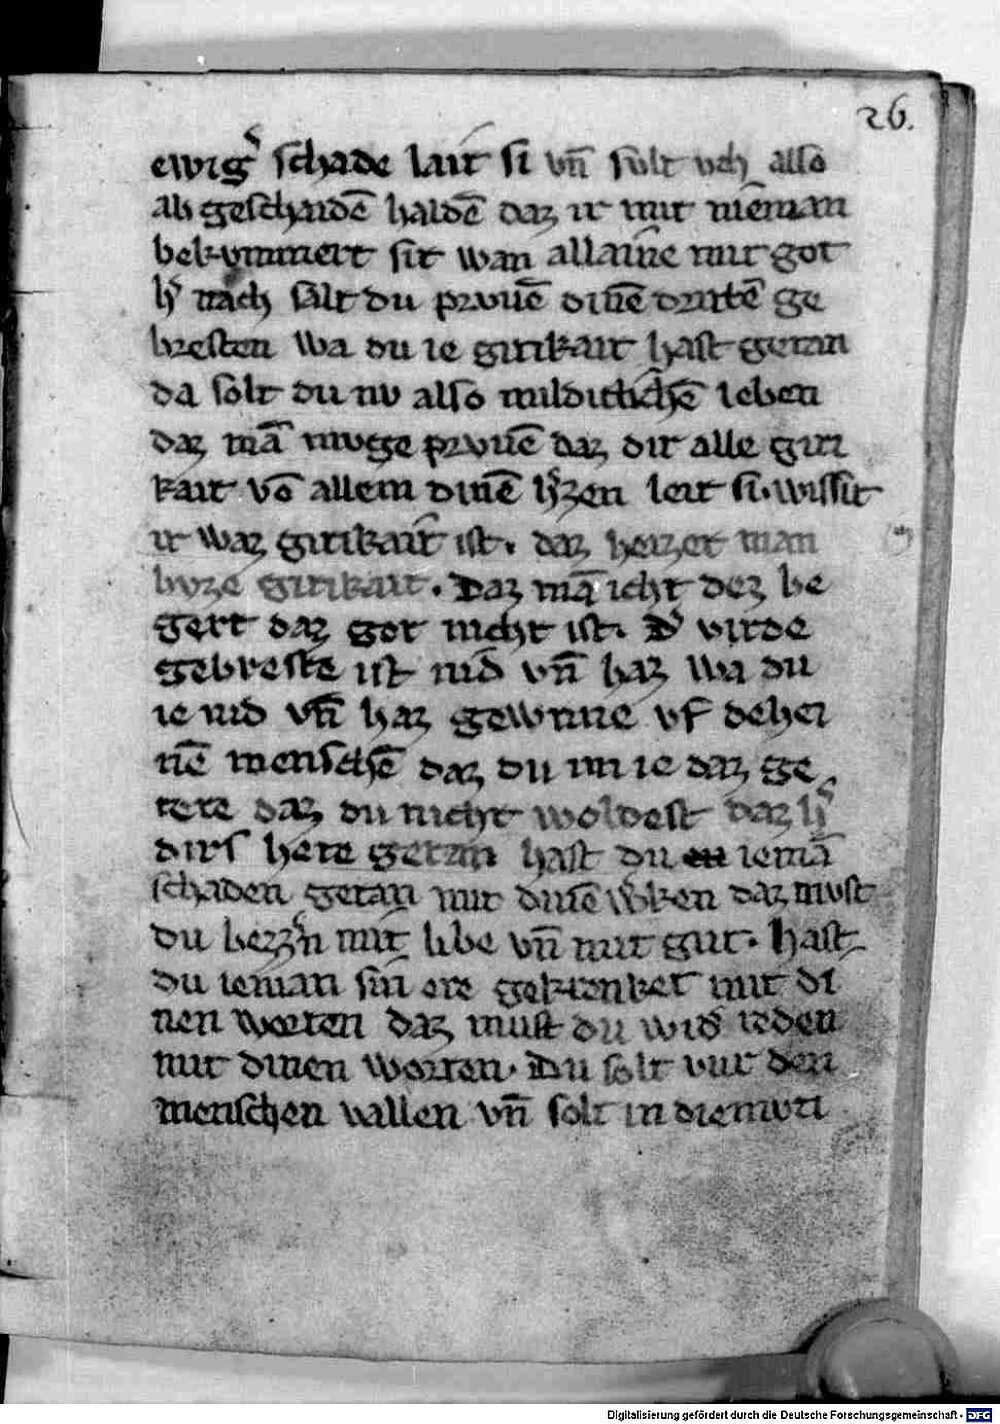 26.
ewigˢ schade lait si vn̄ svlt vch also
ab geschaidē haldē daz ir mit nieman
bekvmmert sit wan allaine mit got
hˢ nach salt du prvuē dinē dritē ge
bresten wa du ie girikait hast getan
da solt du nv also mildiclichē leben
daz mā mvge prvuē daz dir alle giri
kait vō allem dinē hˢzen leit si. wissit
ir waz girikait ist. daz heizet man
boze girikait. Daz mā icht dez be
gert daz got nicht ist. Dˢ virde
gebreste ist nid vn̄ haz wa du
ie nid vn̄ haz gewnne vf dehei
nē menschē daz du im ie daz ge
tete daz du nicht woldest daz hˢ
dirs hete getan hast du iemā
schaden getan mit dinē wˢken daz mvst
du bezzˢn mit libe vn̄ mit gut. hast
du ieman sin ere gekrenket mit di
nen worten daz must du widˢ reden
mit dinen worten. Du solt vur den
menschen vallen vn̄ solt in diemvti
Digitalisierung gefördert durch die Deutsche Forschungsgemeinschaft - DFG